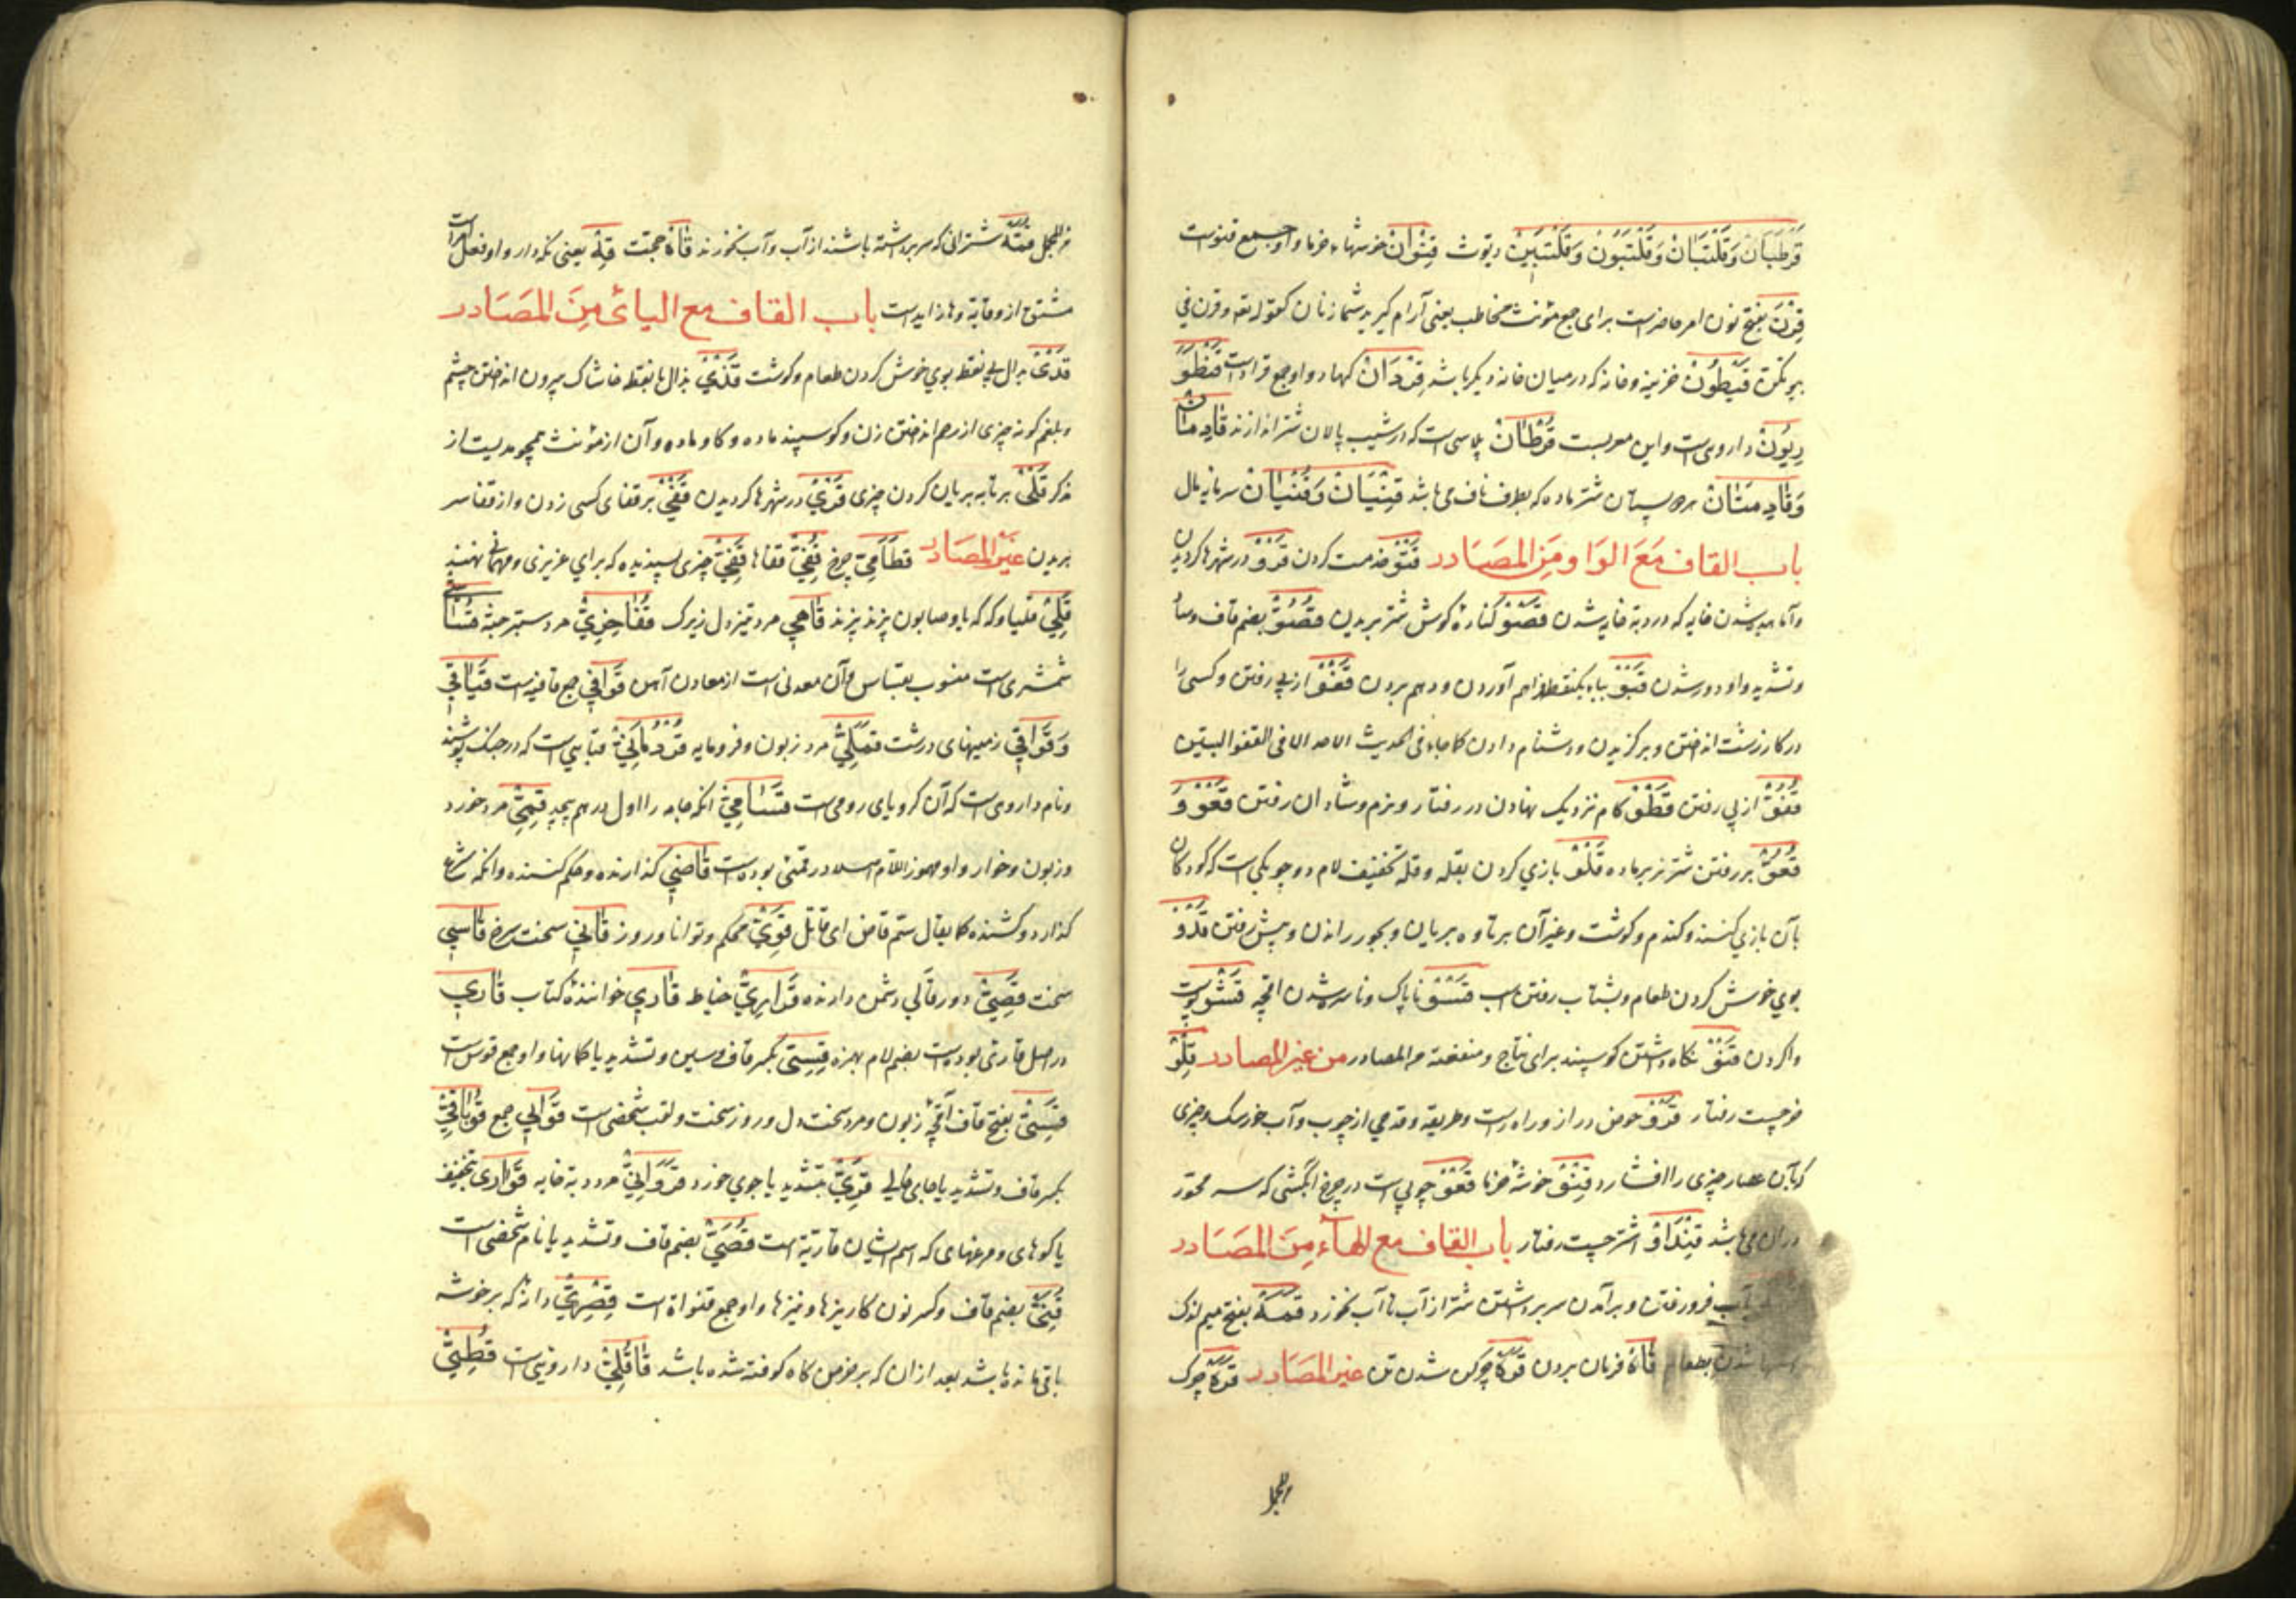 قَرْطَبَانْ وَقَلْتَبَانْ وَقَلْتَبُونْ وَقَلْتَبِينْ دیوث قِنْوَانْ خوشهاء خرما و او جمع قنوست
قِرْنَ بفتح نون امر حاضرست برای جمع مؤنث مخاطب یعنی آرام گیرید شما زنان کقوله تعه وقرن فی
بیوتکن قَیْطُونْ خزینه و خانه که در میان خانه دیگر باشد قِرْدَانْ کنها و او جمع قرادست قَنْطُوْ
رِیُونْ داروی است و این معربست قُرْطَانْ پلاسی است که در شیب پالان شتر اندازند قَادِمَتَانْ
وَقَادِمَتَانْ سرو پستان شتر ماده که بطرف ناف می باشد قِنْیَانْ وَقُنْیَانْ سرمایه مال
باب القاف مَعَ الوَاو مِنَ المصَادر قَتْوْ خدمت کردن قَرْوْ در شهرها کردیدن
و آماسیده شدن خایه که در دبه خایه شدن قَصْوْ کناره گوش شتر بریدن قُصُوّْ بضم قاف و صاد
و تشدید واو دور شدن قَبْوْ بباء یکنقطه فراهم آوردن و درهم بردن قَفْوْ از پی رفتن و کسی را
در کار زشت انداختن و برگزیدن و دشنام دادن کما جاء فی الحدیث الا حد الا فی القفو البیّن
قُفُوّْ از پی رفتن قَطْوْ گام نزدیک نهادن در رفتار و نرم و شادان رفتن قَعْوْ وَ
قُعُوّْ بر رفتن شتر نر بر ماده قَلْوْ بازی کردن بقله و قله بتخفیف لام دو چوبکی است که کودکان
بآن بازی کنند و گندم و گوشت و غیر آن بر تاوه بریان و بجور راندن و پیش رفتن قَدْوْ
بوی خوش کردن طعام و بشتاب رفتن اسب قَسْوْ ناپاک و ناسره شدن اقچه قَشْوْ پوست
واکردن قَنْوْ نگاه داشتن گوسپند برای نتاج و منفعته من المصادر من غیر المصادر قِلْوْ
خر چست رفتار قَرْوْ حوض دراز و راه راست و طریقه و قدحی از چوب و آب خور سگ و چیزی
که بآن عصار چیزی را افشارد قِنْوْ خوشه خرما قَعْوْ چوبی است در چرخ آبکشی که سر محور
در آن می باشد قِنْدَاوْ اشتر چست رفتار باب القاف مع الهاء مِنَ المصَادر
آب فرو رفتن و بر آمدن سر برداشتن شتر از آب تا آب نخورد قَمَهْ بفتح میم اندک
شدن بطعام قَاهْ فرمان بردن قَرَهْ چرکن شدن تن غیر المصَادر قَرَهْ چرک
من المجمل
من المجمل قُمَّهْ شترانی که سر برداشته باشند از آب و آب نخورند قَاهْ حجت قِهْ یعنی نگه دار و او فعل امر است
مشتق از وقایة و ها زایدست باب القاف مع الیائ مِنَ المصَادر
قَدْیْ بدال بی نقطه بوی خوش کردن طعام و گوشت قَذْیْ بذال با نقطه خاشاک بیرون انداختن چشم
و بلغم گونه چیزی از رحم انداختن زن و گوسپند ماده و گاو ماده و آن از مؤنث همچو مدیست از
مذکر قَلْیْ بر تابه بریان کردن چیزی قَرْیْ در شهرها کردیدن قَفْیْ بر قفای کسی زدن و از قفا سر
بریدن غیر المصَادر قطَامِیّْ چرغ قُفِیّْ قفاها قَفِیّْ چیزی پسندیده که برای عزیزی و مهمانی نهند
قِلْیْ قلیا و که که باو صابون پزند قَاهِی مرد تیز دل زیرک قُفَاخِرِیّْ مرد ستبر جثه قُسَاسِیّْ
شمشیری است منسوب بقساس و آن معدنی است از معادن آهن قَوَافِی جمع قافیه است قَیَاقِی
وَقَوَاقِی زمینهای درشت قَمَلِیّْ مرد زبون و فرومایه قُرْدُمَانِیّْ قبایی است که در جنگ پوشند
و نام داروی است که آن کرویای رومی است قَسَامِیّْ آنکه جامه را اول درهم پیچد قَمِیّْ مرد خورد
و زبون و خوار و او مهموز اللام است در قمئ بوده است قَاضِی گذارنده و حکم کننده و آنکه شرع
گذارد و کشنده کما یقال سمّ قاض ای قاتل قَوِیّْ محکم و توانا و روز قَانِی سخت سرخ قَاسِی
سخت قَصِیّْ دور قَالِی دشمن دارنده قَرَارِیّْ خیاط قَارِی خواننده کتاب قَارِی
در اصل قارئ بوده است بضم لام بهمزه قِسِیّْ بکسر قاف و سین و تشدید یا کمانها و او جمع قوس است
قَسِیّْ بفتح قاف آقچه زبون و مرد سخت دل و روز سخت و لقب شخصی است قَوَالِی جمع
بکسر قاف و تشدید یا جای خالی قَرِیّْ بتشدید یا جوی خورد قَرَوَانِیّْ مرد دبه خایه قَوَارِی بتخفیف
یا گوهای و مرغهای که اسم ایشان قاریة است قُصَیّْ بضم قاف و تشدید یا نام شخصی است
قُنِیّْ بضم قاف و کسر نون کاریزها و نیزها و او جمع قنواة است قِصْرِیّْ دانه که بر خوشه
باقی مانده باشد بعد از آن که بر خرمن گاه کوفته شده باشد قَاقُلِیّْ دارونی است قُطْبِیّْ